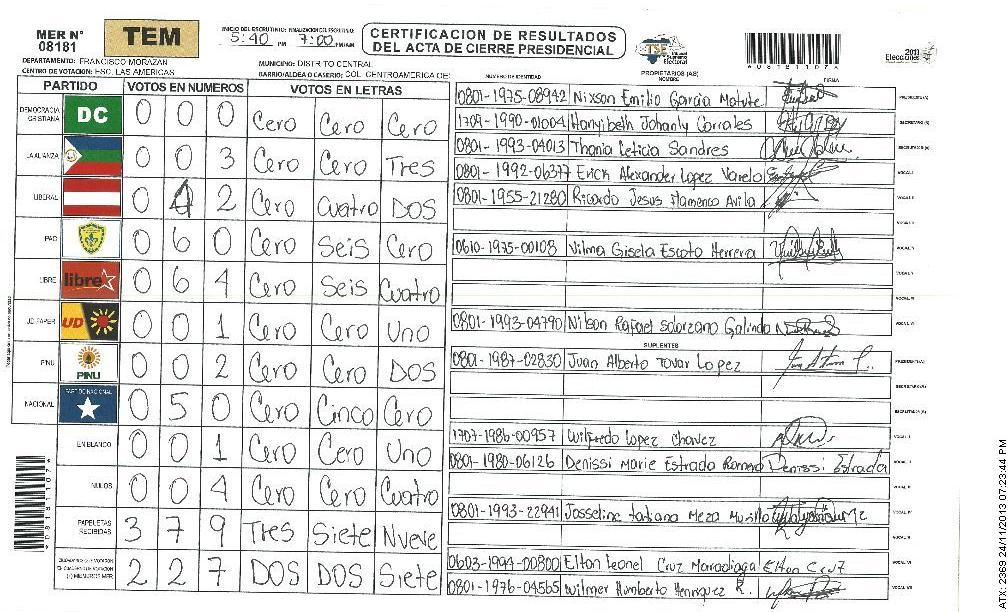 MER N° 08181
TEM
INICIO DEL ESCRUTINIO: FINALIZACION DEL ESCRUTINIO:
5:40 PM 7:00 PM/AM
CERTIFICACION DE RESULTADOS
DEL ACTA DE CIERRE PRESIDENCIAL
TSE Tribunal Supremo Electoral
2013 Elecciones
DEPARTAMENTO: FRANCISCO MORAZAN
MUNICIPIO: DISTRITO CENTRAL
CENTRO DE VOTACION: ESC. LAS AMERICAS
BARRIO/ALDEA O CASERIO: COL. CENTROAMERICA OE
PARTIDO VOTOS EN NUMEROS VOTOS EN LETRAS
DEMOCRACIA CRISTIANA DC 0 0 0 Cero Cero Cero
LA ALIANZA 0 0 3 Cero Cero Tres
LIBERAL 0 4 2 Cero Cuatro DOS
PAC 0 6 0 Cero Seis Cero
LIBRE libre 0 6 4 Cero Seis Cuatro
UD-FAPER UD 0 0 1 Cero Cero Uno
PINU PINU 0 0 2 Cero Cero DOS
NACIONAL PARTIDO NACIONAL 0 5 0 Cero Cinco Cero
EN BLANCO 0 0 1 Cero Cero Uno
NULOS 0 0 4 Cero Cero Cuatro
PAPELETAS RECIBIDAS 3 7 9 TRES Siete Nueve
2 2 7 DOS DOS Siete
NÚMERO DE IDENTIDAD PROPIETARIOS (AS) NOMBRE FIRMA
0801-1975-08942 Nixson Emilio Garcia Matute PRESIDENTE(A)
1709-1990-01004 Hanyibeth Johanly Corrales SECRETARIO (A)
0801-1993-04013 Thania Leticia Sandres ESCRUTADOR (A)
0801-1992-06377 Erick Alexander Lopez Varela VOCAL I
0801-1955-21280 Ricardo Jesus Flamenco Avila VOCAL II
VOCAL III
0610-1975-00108 Vilma Gisela Escoto Herrera VOCAL IV
VOCAL V
VOCAL VI
0801-1993-04790 Nilson Rafael Solorzano Galindo
SUPLENTES
0801-1987-02830 Juan Alberto Tovar Lopez PRESIDENTE(A)
SECRETARIO (A)
ESCRUTADOR (A)
1707-1986-00957 Wilfredo Lopez Chavez VOCAL I
0801-1980-06126 Denissi Marie Estrada Romero Denissi Estrada VOCAL II
VOCAL III
0801-1993-22941 Josseline Tatiana Meza Murillo VOCAL IV
VOCAL V
0603-1994-00800 Elton Leonel Cruz Maradiaga Elton Cruz VOCAL VI
0801-1976-04565 Wilmer Humberto Henriquez R.
0 8 1 8 1 1 0 7
ATX: 2369 24/11/2013 07:23:44 PM